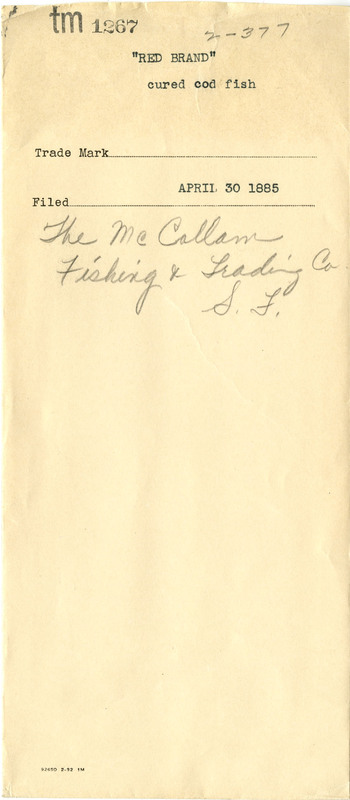 tm 1267 2-377
"RED BRAND"
cured cod fish
Trade Mark
APRIL 30 1885
Filed
The McCollam
Fishing & Trading Co
S. F.